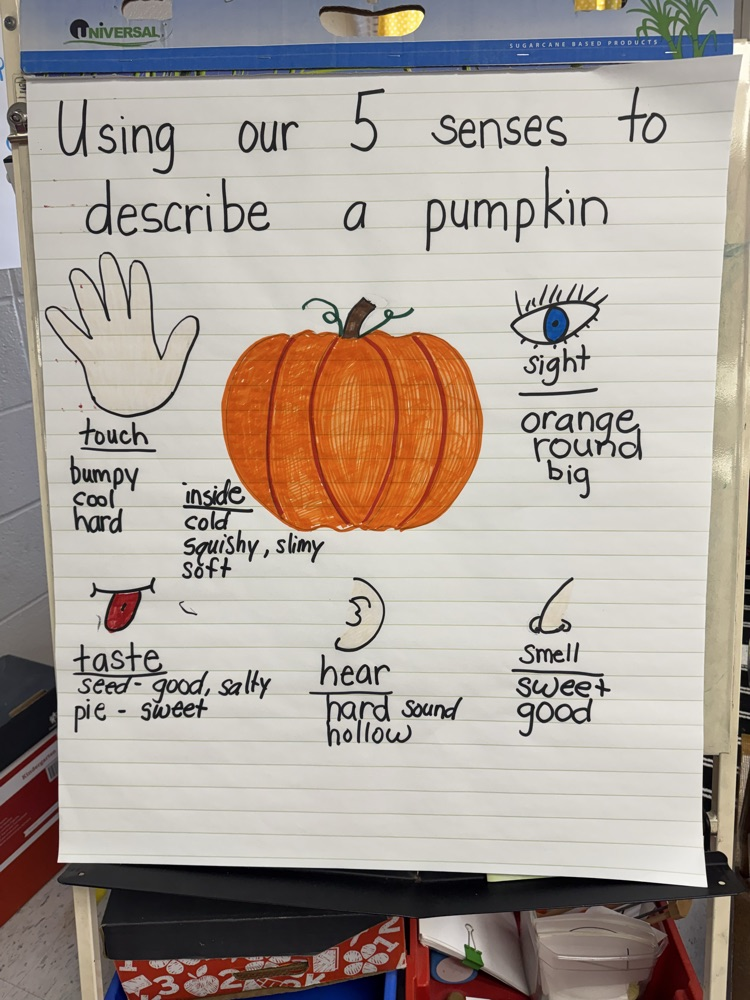 UNIVERSAL
SUGARCANE BASED PRODUCTS
Using our 5 senses to
describe a pumpkin
touch
bumpy
cool
hard
inside
cold
squishy, slimy
soft
sight
orange
round
big
taste
seed - good, salty
pie - sweet
hear
hard sound
hollow
smell
sweet
good
Kindergarten